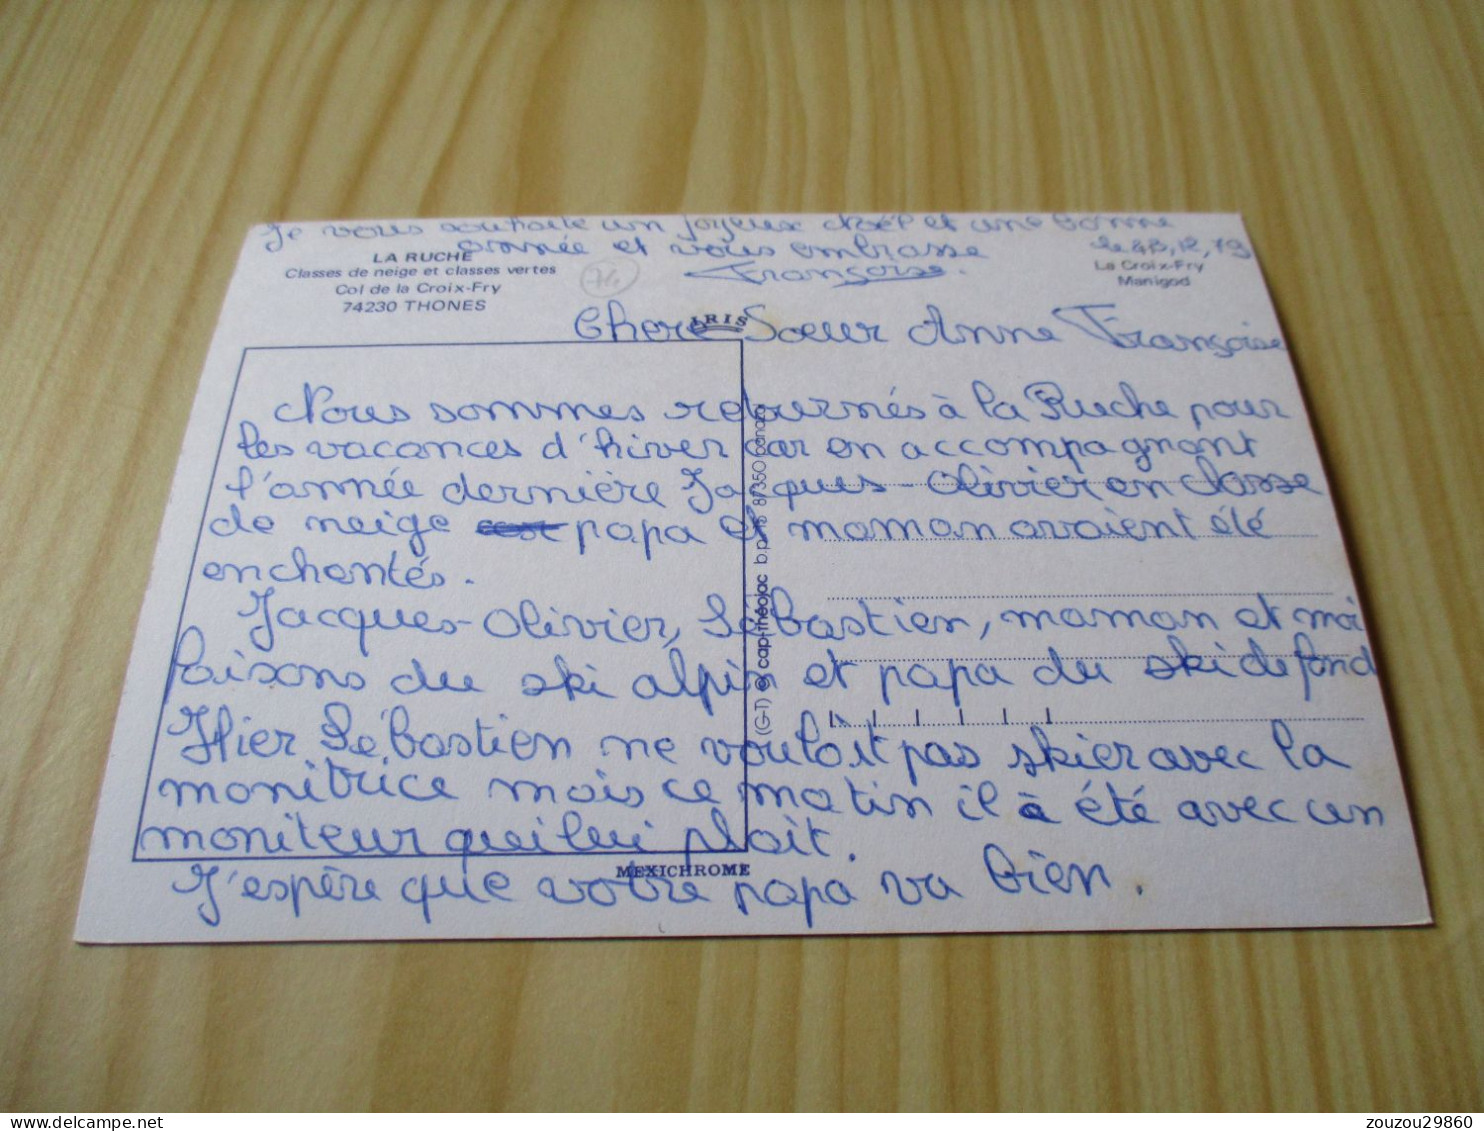 Je vous souhaite un joyeux Noël et une bonne
année et vous embrasse
Françoise.
LA RUCHE
Classes de neige et classes vertes
Col de la Croix-Fry
74230 THONES
74
12, 79
La Croix-Fry
Manigod
IRIS
Chere Sœur Anne Françoise
Nous sommes retournés à la Ruche pour
les vacances d'hiver car en accompagnant
l'année dernière Jacques-Olivier en classe
de neige papa et maman avaient été
enchantés.
Jacques-Olivier, Sébastien, maman et moi
faisons du ski alpin et papa du ski de fond
Hier Sébastien ne voulait pas skier avec la
monitrice mais ce matin il à été avec un
moniteur qui lui plait.
J'espère que votre papa va bien.
MEXICHROME
(G-T) cap-théojac b.p. 87350 panazol
zouzou29860